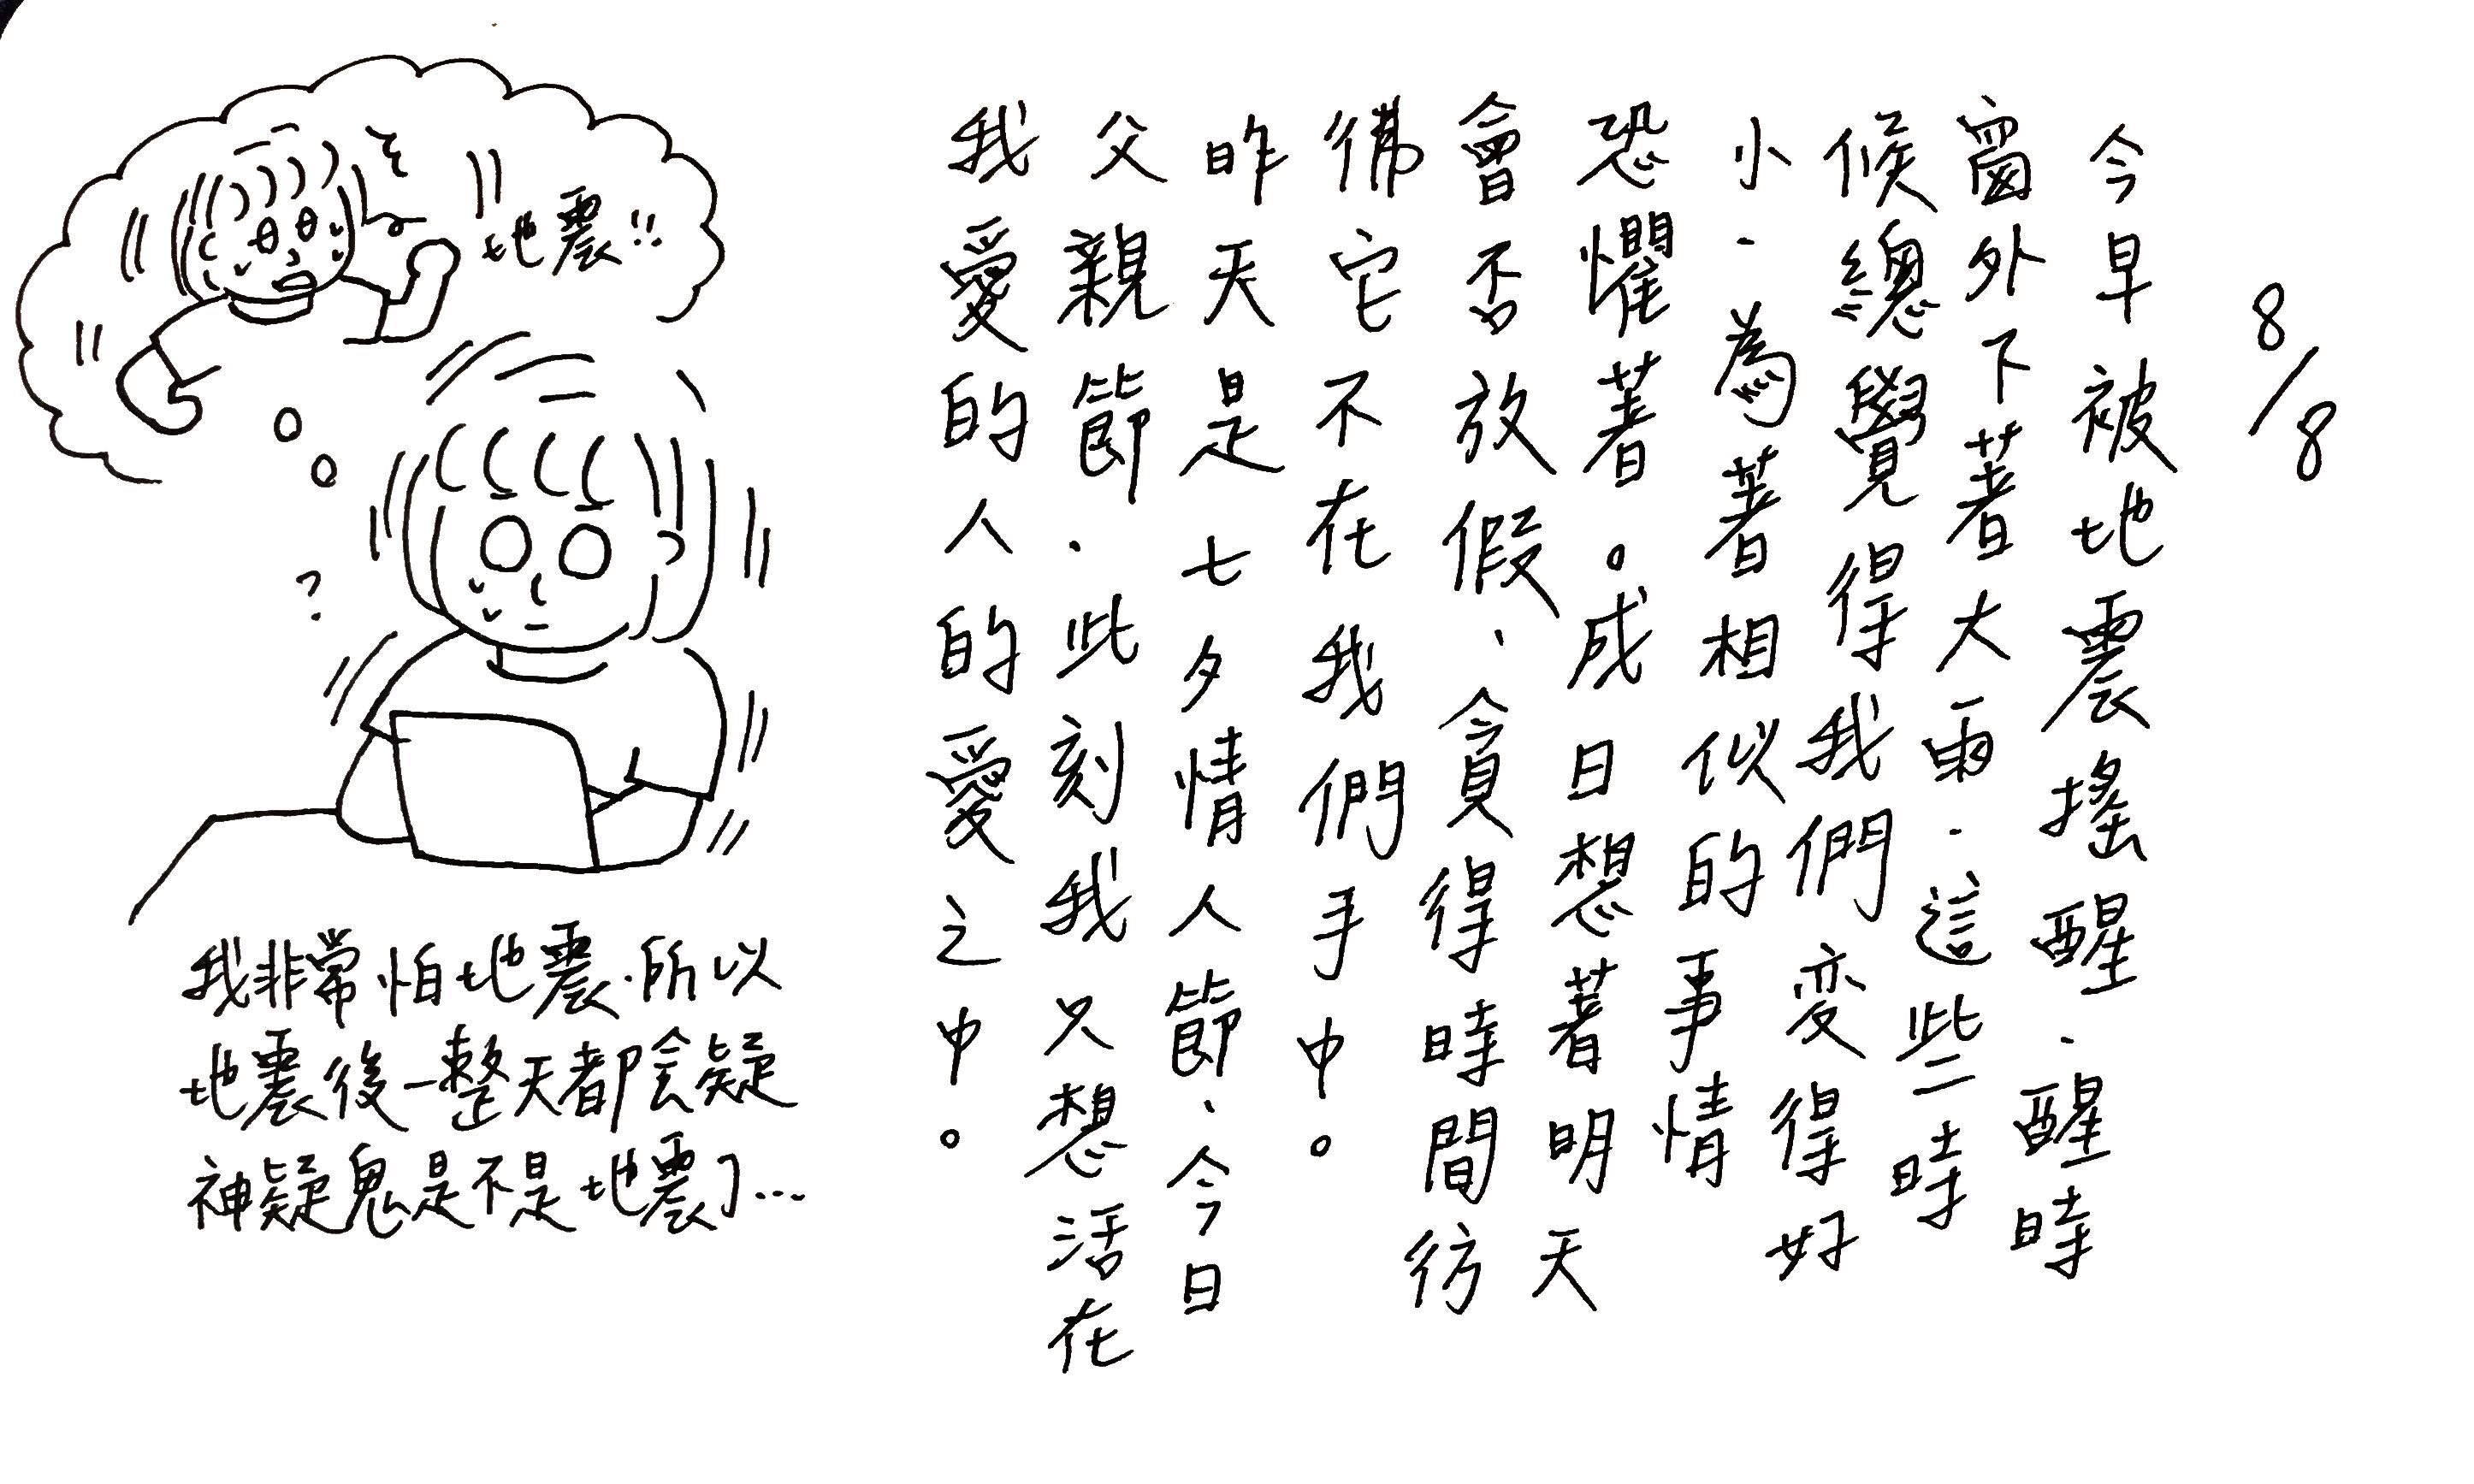 8/8
今早被地震搖醒.醒時
窗外下著大雨.這些時
候總覺得我們变得好
小.為著相似的事情
恐懼著。成日想著明天
會否放假、貪得時間彷
彿它不在我們手中。
昨天是七夕情人節、今日
父親節.此刻我只想活在
我愛的人的愛之中。
地震!!
?
我非常怕地震.所以
地震後一整天都会疑
神疑鬼是不是地震了...